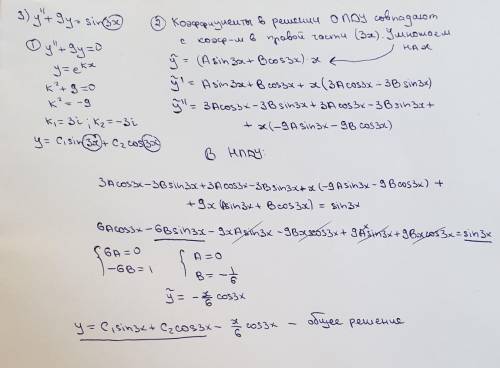 3) y'' + 9y = sin3x
① y'' + 9y = 0
y = e^kx
k² + 9 = 0
k² = -9
k₁ = 3i ; k₂ = -3i
y = C₁sin3x + C₂cos3x
② Коэффициенты в решении ОЛДУ совпадают
с коэф-м в правой части (3x). Умножаем
на x
ỹ = (Asin3x + Bcos3x) x
ỹ' = Asin3x + Bcos3x + x(3Acos3x - 3Bsin3x)
ỹ'' = 3Acos3x - 3Bsin3x + 3Acos3x - 3Bsin3x +
+ x(-9Asin3x - 9Bcos3x)
В НЛДУ:
3Acos3x - 3Bsin3x + 3Acos3x - 3Bsin3x + x(-9Asin3x - 9Bcos3x) +
+ 9x(Asin3x + Bcos3x) = sin3x
6Acos3x - 6Bsin3x - 9xAsin3x - 9Bxcos3x + 9Axsin3x + 9Bxcos3x = sin3x
{ 6A = 0 { A = 0
-6B = 1 B = -1/6
ỹ = -x/6 cos3x
y = C₁sin3x + C₂cos3x - x/6 cos3x - общее решение